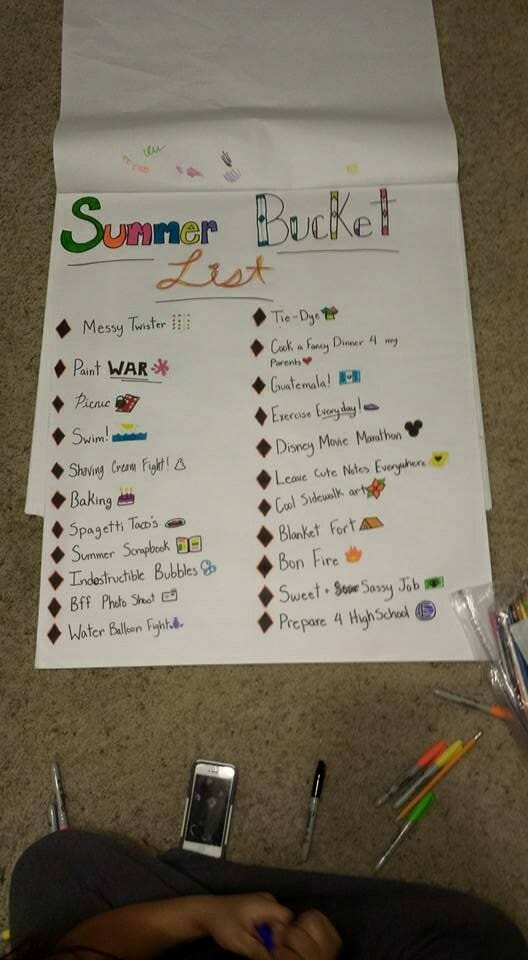 Summer Bucket
List
Messy Twister
Paint WAR
Picnic
Swim!
Shaving Cream Fight!
Baking
Spagetti Taco's
Summer Scrapbook
Indestructible Bubbles
Bff Photo Shoot
Water Balloon Fight
Tie-Dye
Cook a Fancy Dinner 4 my
Parents
Guatemala!
Exercise Everyday!
Disney Movie Marathon
Leave Cute Notes Everywhere
Cool Sidewalk art
Blanket Fort
Bon Fire
Sweet + Sassy Job
Prepare 4 HighSchool